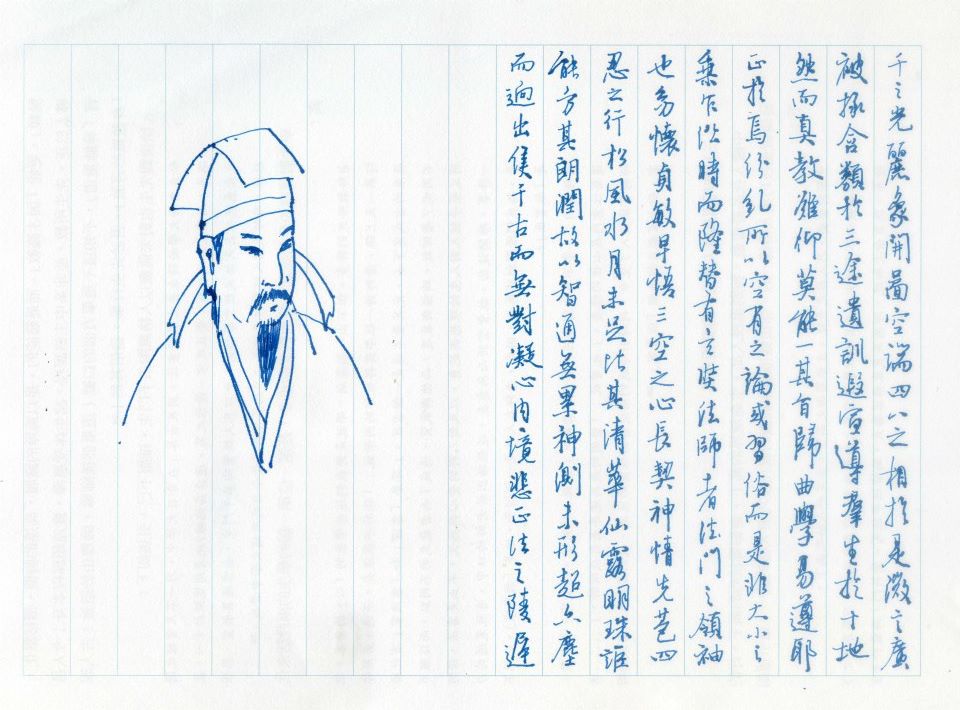 千之光麗象開圖空端四八之相於是微言廣
被拯含類於三途遺訓遐宣導羣生於十地
然而真教難仰莫能一其旨歸曲學易遵耶
正於焉紛糺所以空有之論或習俗而是非大小之
乘乍沿時而隆替有玄奘法師者法門之領袖
也幼懷貞敏早悟三空之心長契神情先苞四
忍之行松風水月未足比其清華仙露明珠詎
能方其朗潤故以智通無累神測未形超六塵
而迥出隻千古而無對凝心內境悲正法之陵遲